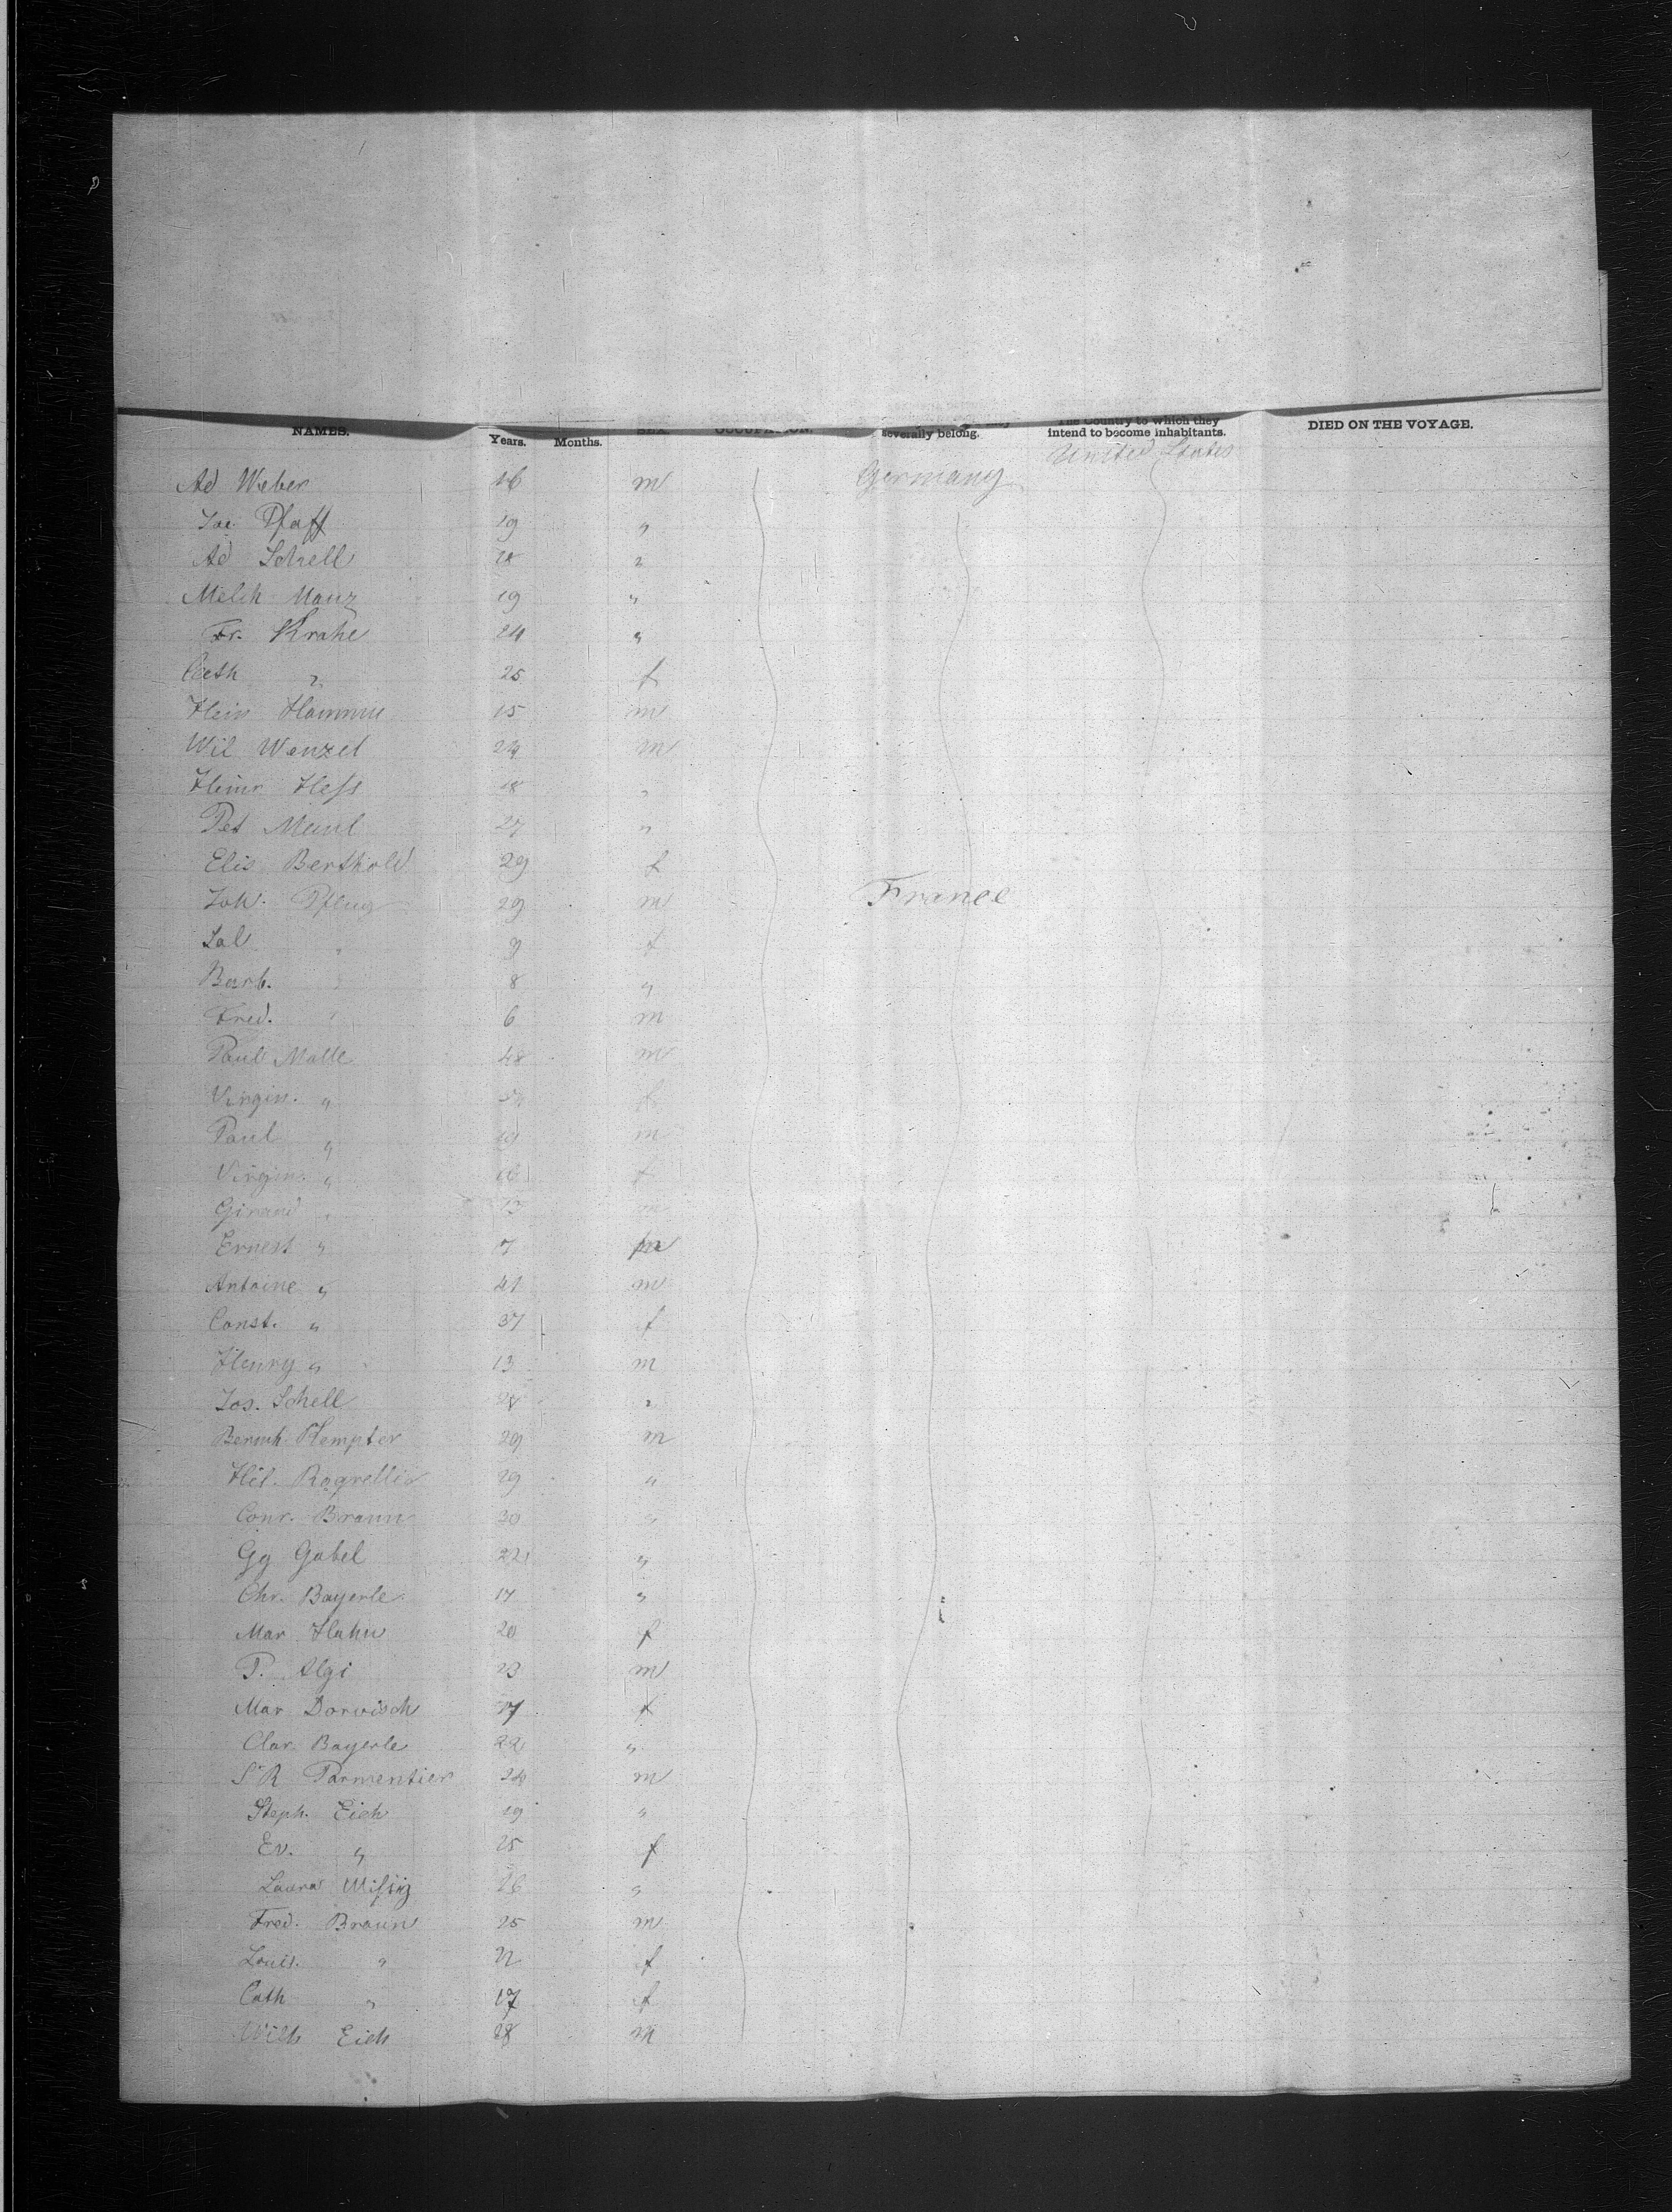 NAMES. Years. Months. SEX. OCCUPATION. severally belong. The Country to which they intend to become inhabitants. DIED ON THE VOYAGE.
United States
Ad Weber 16 m Germany
Jac Pfaff 19 "
Ad Schell "
Melch Manz 19 "
Fr. Krahe 24 "
Cath " 25 f
Hein 15 m
Wil Wenzel 24 m
Heinr Hess 18 "
Pet 27 "
Elis Berthold 29 f
Joh. Pflug 29 m France
Sal " 9 f
Barb. " 8 "
Fred. " 6 m
Paul Malle 48 m
Virgin. " f
Paul " 19 m
Virgin. " f
" 13 m
Ernest " 7 m
Antoine " 41 m
Const. " 37 f
Henry " 13 m
Jos. Schell "
Kempter 29 m
29 "
Conr. Braun 30 "
Gg Gabel 22 "
Chr. Bayerle 17 "
Mar Hahn 20 f
P. Algi 23 m
Mar Dorwisch 17 f
Clar. Bayerle 22 "
Parmentier 24 m
Steph. Eich 19 "
Ev. " 25 f
Laura "
Fred. Braun 25 m
Louis. " f
Cath " 17 f
Wilh Eich 28 m